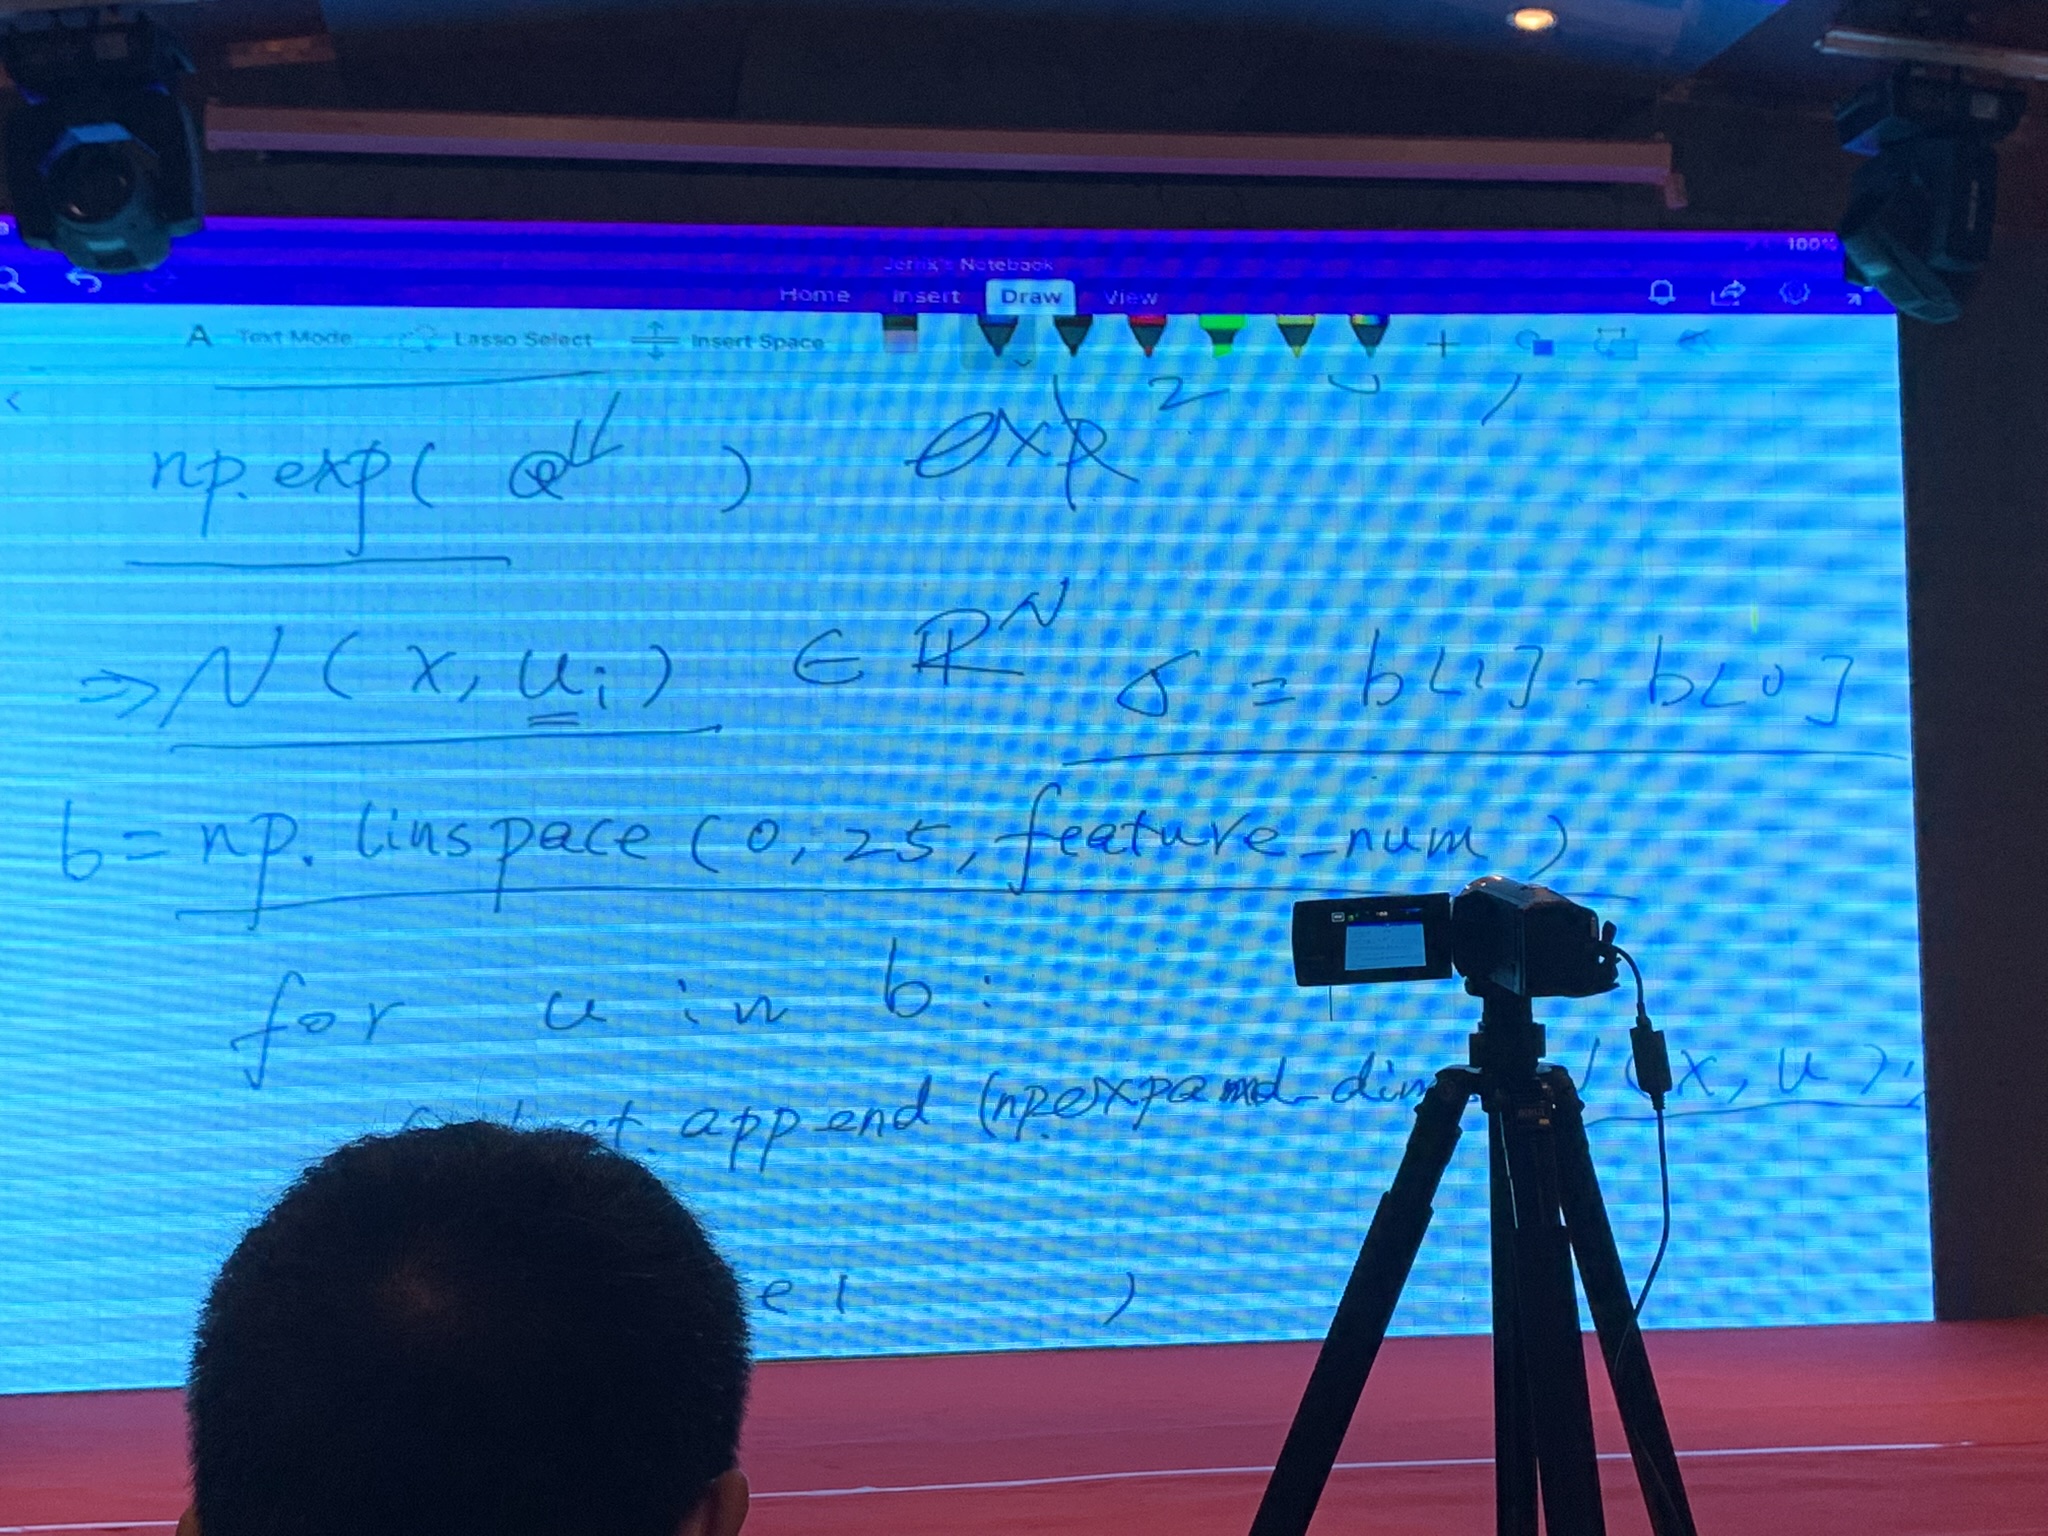 100%
Jerrik's Notebook
Home Insert Draw View
A Text Mode Lasso Select Insert Space
2
np.exp( ) exp
⇒ N(x, u_i) ∈ ℝ^N σ = b[1] - b[0]
b = np.linspace(0, 25, feature_num)
for u in b:
append (np.expand_dim (x, u),
)